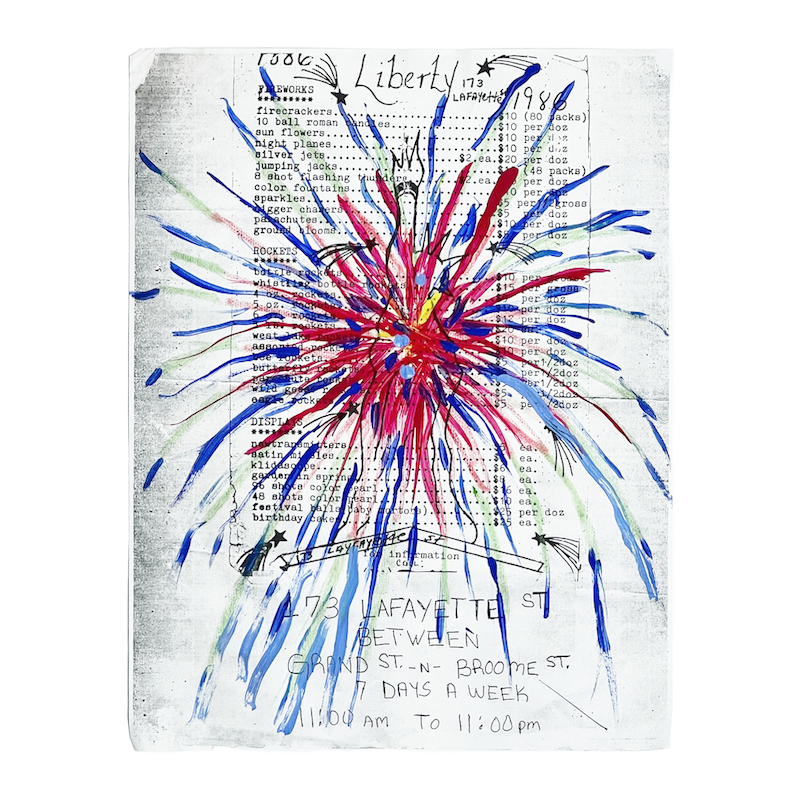 1886 Liberty 173
LAFAYETTE ST 1986
FIREWORKS
*********
firecrackers. $10 (80 packs)
10 ball roman candles. $10 per doz
sun flowers. $10 per doz
night planes. $10 per doz
silver jets. $2.ea.$20 per doz
jumping jacks. (48 packs)
8 shot flashing thunders. .ea. per doz
color fountains. per doz
sparkles. $5 per/12gross
bigger chasers. $5 per doz
parachutes. $10 per doz
ground blooms. $5 per doz
ROCKETS
*******
bottle rockets. $10 per
whistling bottle rockets. $15 per gross
4 oz. rockets. per doz
5 oz. rockets. per doz
rockets. $12 per doz
rockets. $20
west per doz
assorted rockets. $10 per doz
rockets. $5 per1/2doz
butterfly rockets. $5 per1/2doz
parachute rockets. $5 per1/2doz
wild geese rockets. per1/2doz
eagle rockets. $5 per1/2doz
DISPLAYS
********
newtransmitters. $5 ea.
satin missles. ea.
klidascope. ea.
garden in spring ea.
96 shots color pearl $16 ea.
48 shots color pearl $10 ea.
festival balls(baby mortors). $25 per doz
birthday cakes $25 ea.
173 LAYFAYETTE ST
for information
173 LAFAYETTE ST
BETWEEN
GRAND ST. -N- BROOME ST.
7 DAYS A WEEK
11:00 AM TO 11:00pm